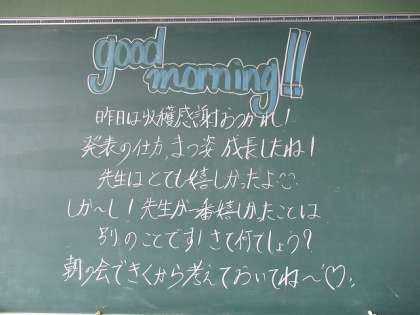 good morning!!
昨日は収穫感謝おつかれ!
発表の仕方、まつ姿 成長したね!
先生はとても嬉しかったよ◡̈
しか〜し!先生が一番嬉しかったことは
別のことです!さて何でしょう?
朝の会できくから考えておいてね〜♡